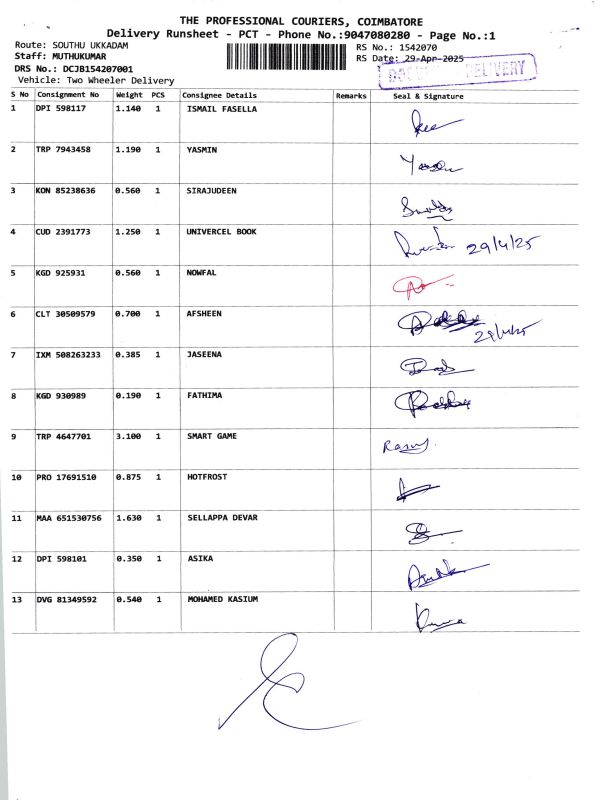 THE PROFESSIONAL COURIERS, COIMBATORE
Delivery Runsheet - PCT - Phone No.:9047080280 - Page No.:1
Route: SOUTHU UKKADAM
RS No.: 1542070
Staff: MUTHUKUMAR
RS Date: 29-Apr-2025
DRS No.: DCJB154207001
DELIVERY
Vehicle: Two Wheeler Delivery
S No Consignment No Weight PCS Consignee Details Remarks Seal & Signature
1 DPI 598117 1.140 1 ISMAIL FASELLA
2 TRP 7943458 1.190 1 YASMIN
3 KON 85238636 0.560 1 SIRAJUDEEN
4 CUD 2391773 1.250 1 UNIVERCEL BOOK 29/4/25
5 KGD 925931 0.560 1 NOWFAL
6 CLT 30509579 0.700 1 AFSHEEN
29/4/25
7 IXM 508263233 0.385 1 JASEENA
8 KGD 930989 0.190 1 FATHIMA
9 TRP 4647701 3.100 1 SMART GAME
10 PRO 17691510 0.875 1 HOTFROST
11 MAA 651530756 1.630 1 SELLAPPA DEVAR
12 DPI 598101 0.350 1 ASIKA
13 DVG 81349592 0.540 1 MOHAMED KASIUM